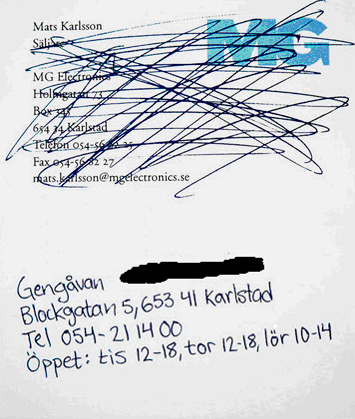 Mats Karlsson
Säljare
MG
MG Electronics
Holmgatan 73
Box 343
654 34 Karlstad
Telefon 054-56 82 25
Fax 054-56 82 27
mats.karlsson@mgelectronics.se
Gengåvan
Blockgatan 5, 653 41 Karlstad
Tel 054-21 14 00
Öppet: tis 12-18, tor 12-18, lör 10-14